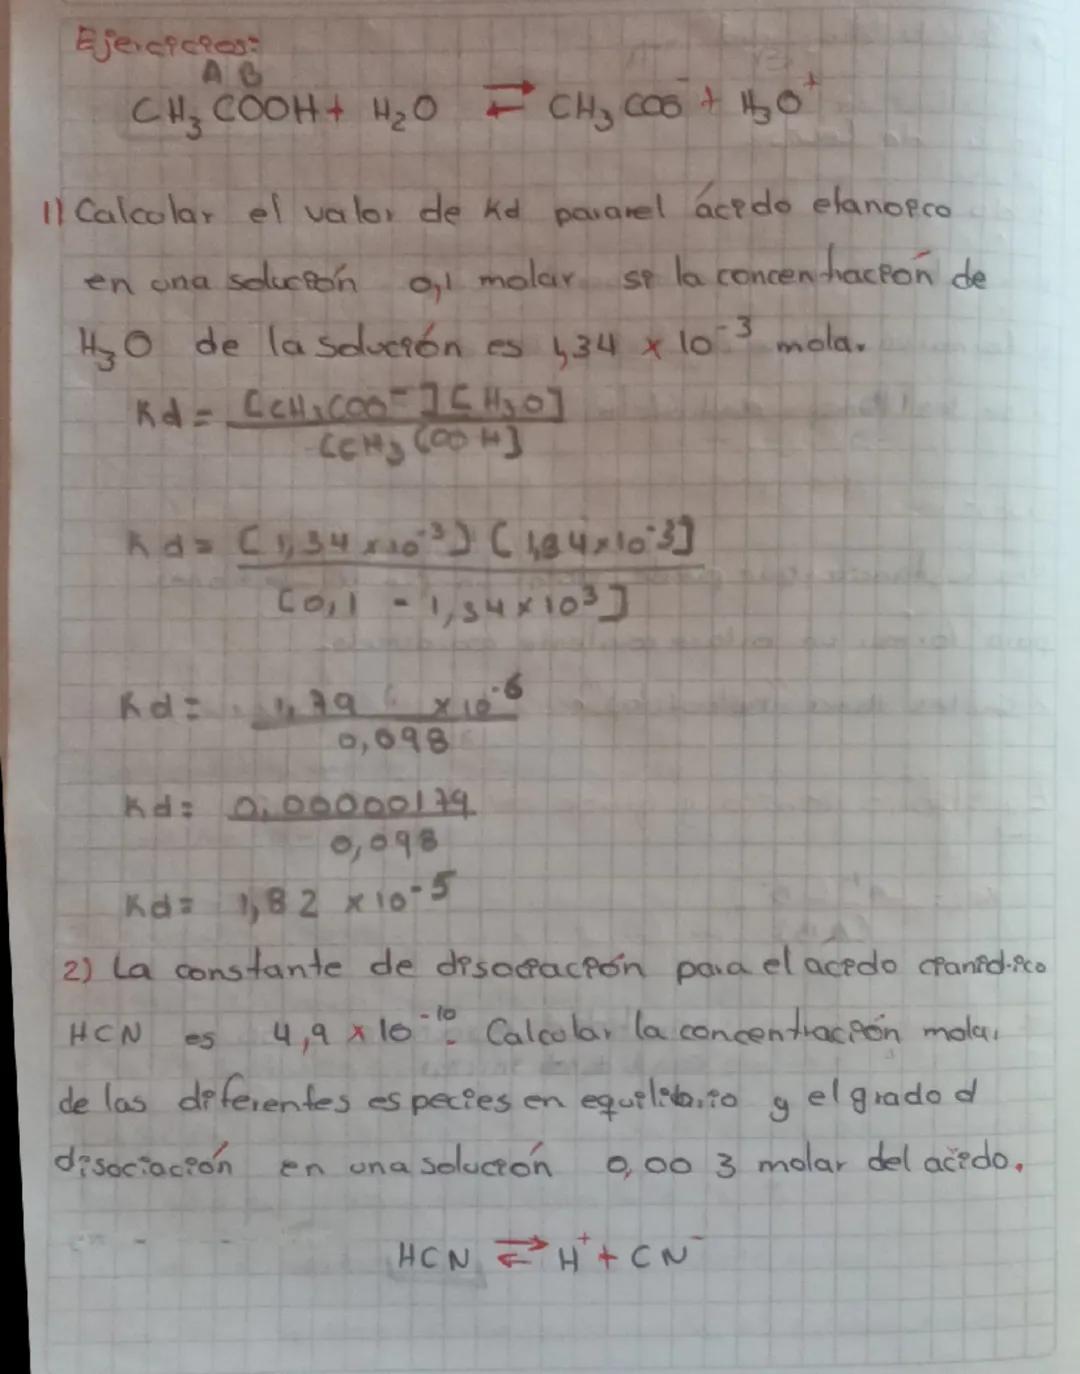 Ejercicios:
A B
CH₃COOH + H₂O ⇄ CH₃COO⁻ + H₃O⁺
1) Calcolar el valor de Kd pararel ácido etanoico
en una solución 0,1 molar si la concentración de
H₃O de la solución es 1,34 x 10⁻³ molar
Kd = [CH₃COO⁻][H₃O]
[CH₃COOH]
Kd = [1,34 x 10⁻³] [1,34 x 10⁻³]
[0,1 - 1,34 x 10³]
Kd = 1,79 x 10⁻⁶
0,098
Kd = 0,00000179
0,098
Kd = 1,82 x 10⁻⁵
2) La constante de disociación para el acido cianidrico
HCN es 4,9 x 10⁻¹⁰. Calcolar la concentración molar
de las diferentes especies en equilibrio y el grado d
disociación en una solución 0,003 molar del acido.
HCN ⇄ H⁺ + CN⁻